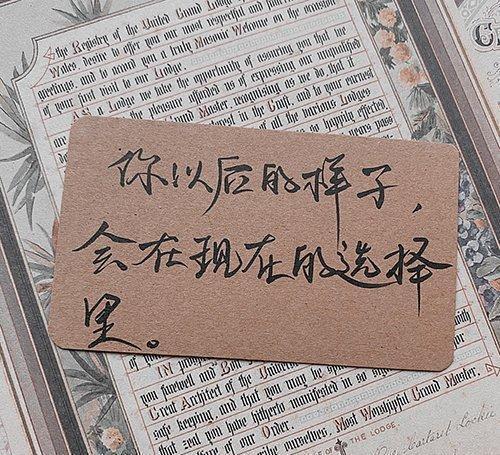 the Registry of the United Grand Lodge
Wales, desire to offer you our most respectful and
greetings, and to accord you a truly Masonic Welcome on the occasion
of your first visit to our Lodge.
As a Lodge we take the opportunity of assuring you
the pleasure afforded us of expressing our unqualified
Master, recognising as we do, that
interest in the Craft, and to your earnest
of all the various Lodges
happily effected,
years pass
你以后的样子，
会在现在的选择
里。
with
you farewell and
Great Architect of the
safe keeping, and that you may be
that zeal you have hitherto manifested in so
of our Order.
ourselves, Most Worshipful Grand Master,
OF THE LODGE.